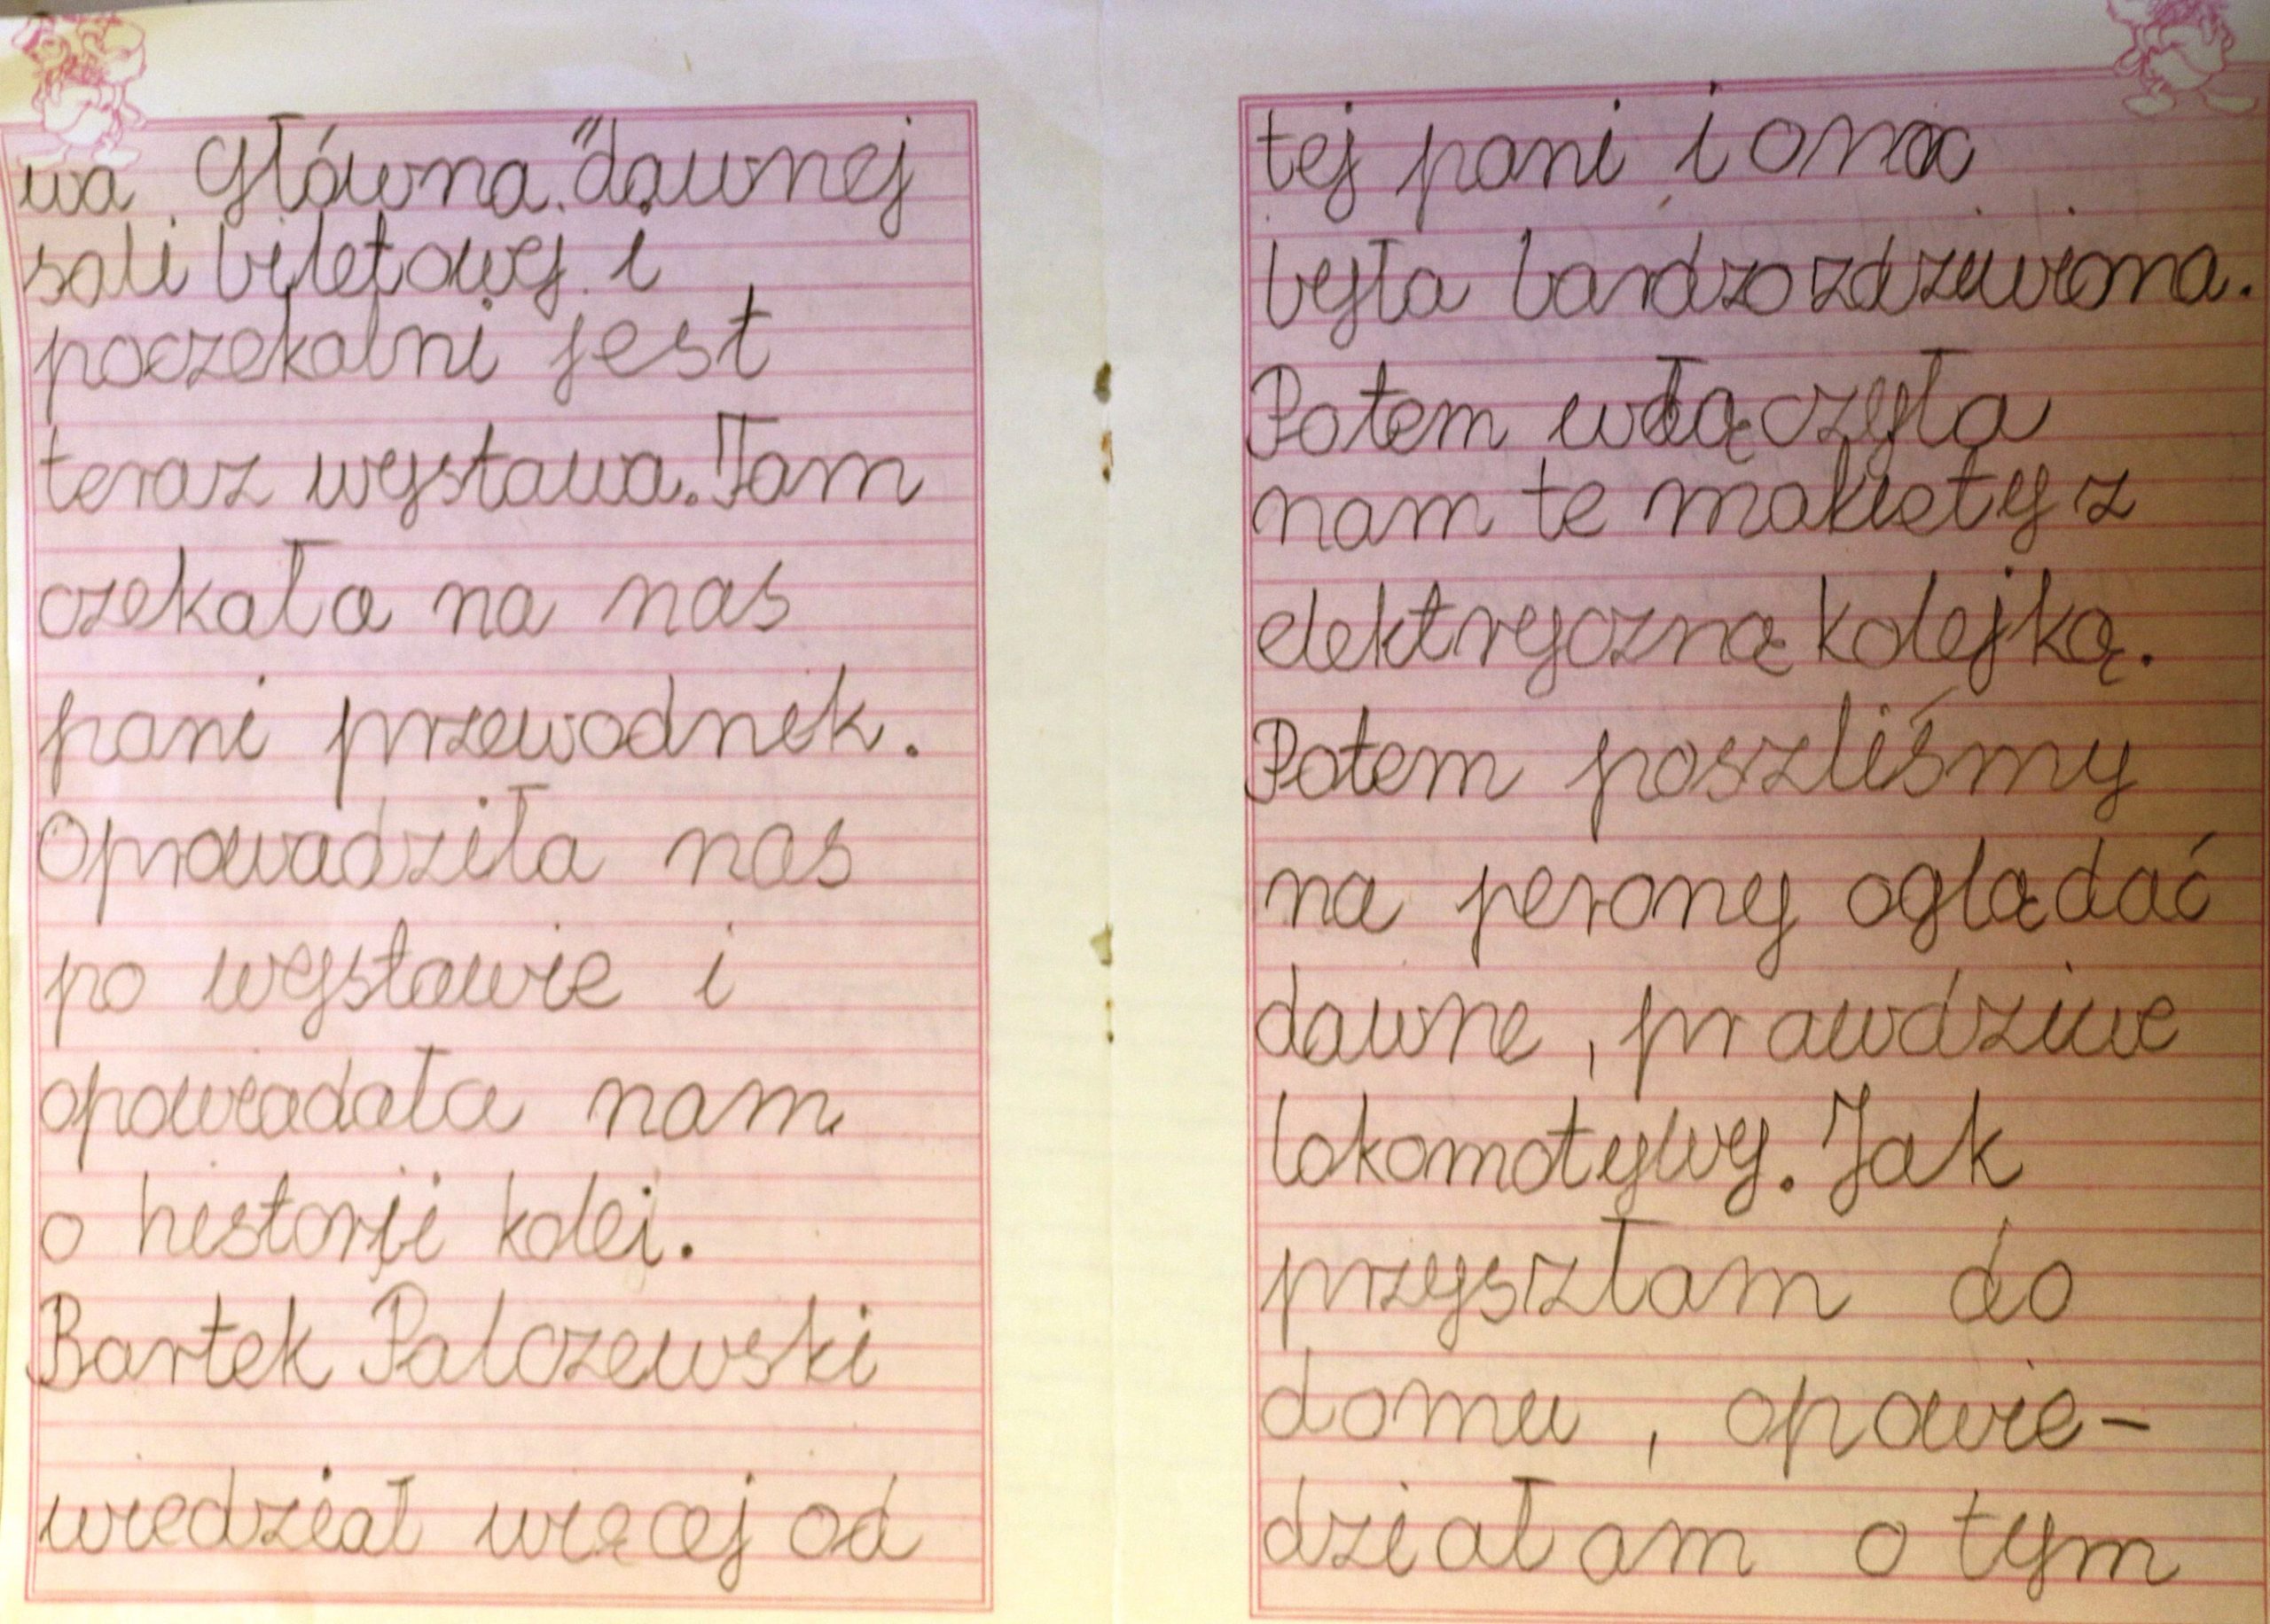 wa Główna." dawnej
sali biletowej i
poczekalni jest
teraz wystawa. Tam
czekała na nas
pani przewodnik.
Oprowadziła nas
po wystawie i
opowiadała nam
o historii kolei.
Bartek Palczewski
wiedział więcej od
tej pani i ona
była bardzo zdziwiona.
Potem włączyła
nam te makiety z
elektryczną kolejką.
Potem poszliśmy
na perony oglądać
dawne, prawdziwe
lokomotywy. Jak
przyszłam do
domu, opowie-
działam o tym